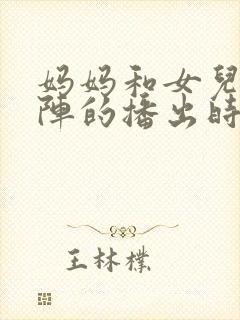 妈妈和女兒
陣的播出時
王林檏